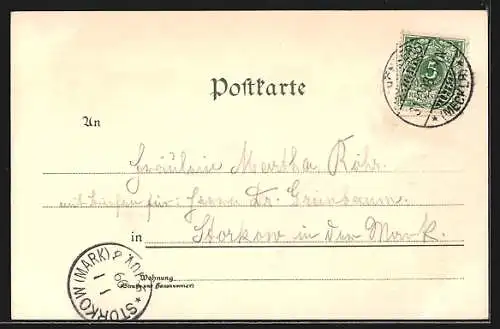 Postkarte
5
(MECKLB)
An
Fräulein Martha Röhr.
für: Herrn Dr. Grünbaum.
in Storkow in der Mark.
Wohnung
(Strasse und Hausnummer)
STORKOW (MARK)
1 1 99